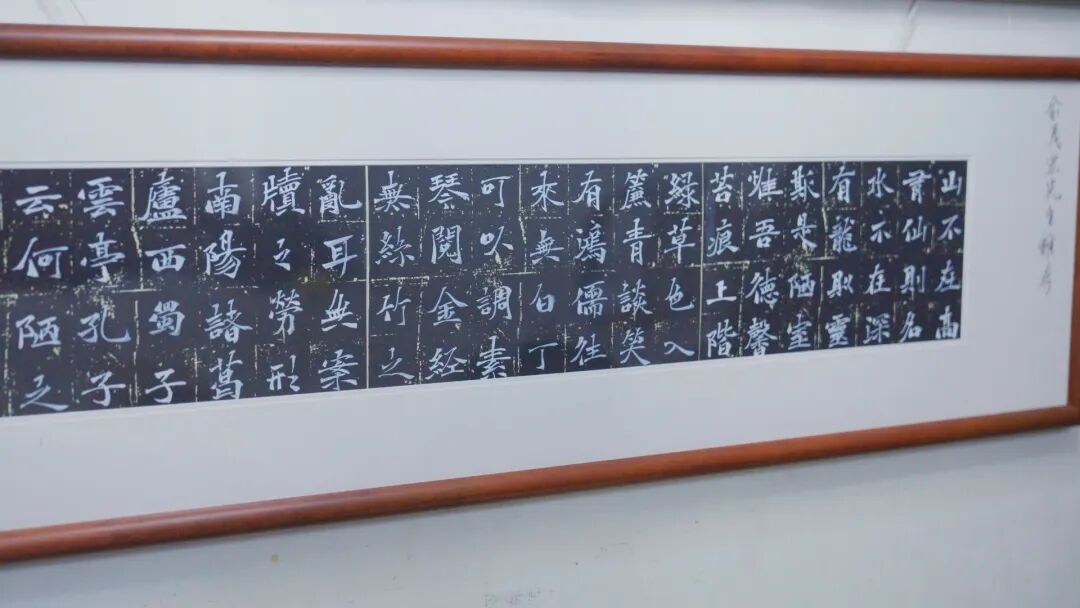 俞先生雅
山不在高
有仙則名
水不在深
有龍則靈
斯是陋室
惟吾德馨
苔痕上階
綠草色入
簾青談笑
有鴻儒往
來無白丁
可以調素
琴閱金经
無絲竹之
亂耳無案
牘之勞形
南陽諸葛
廬西蜀子
雲亭孔子
云何陋之